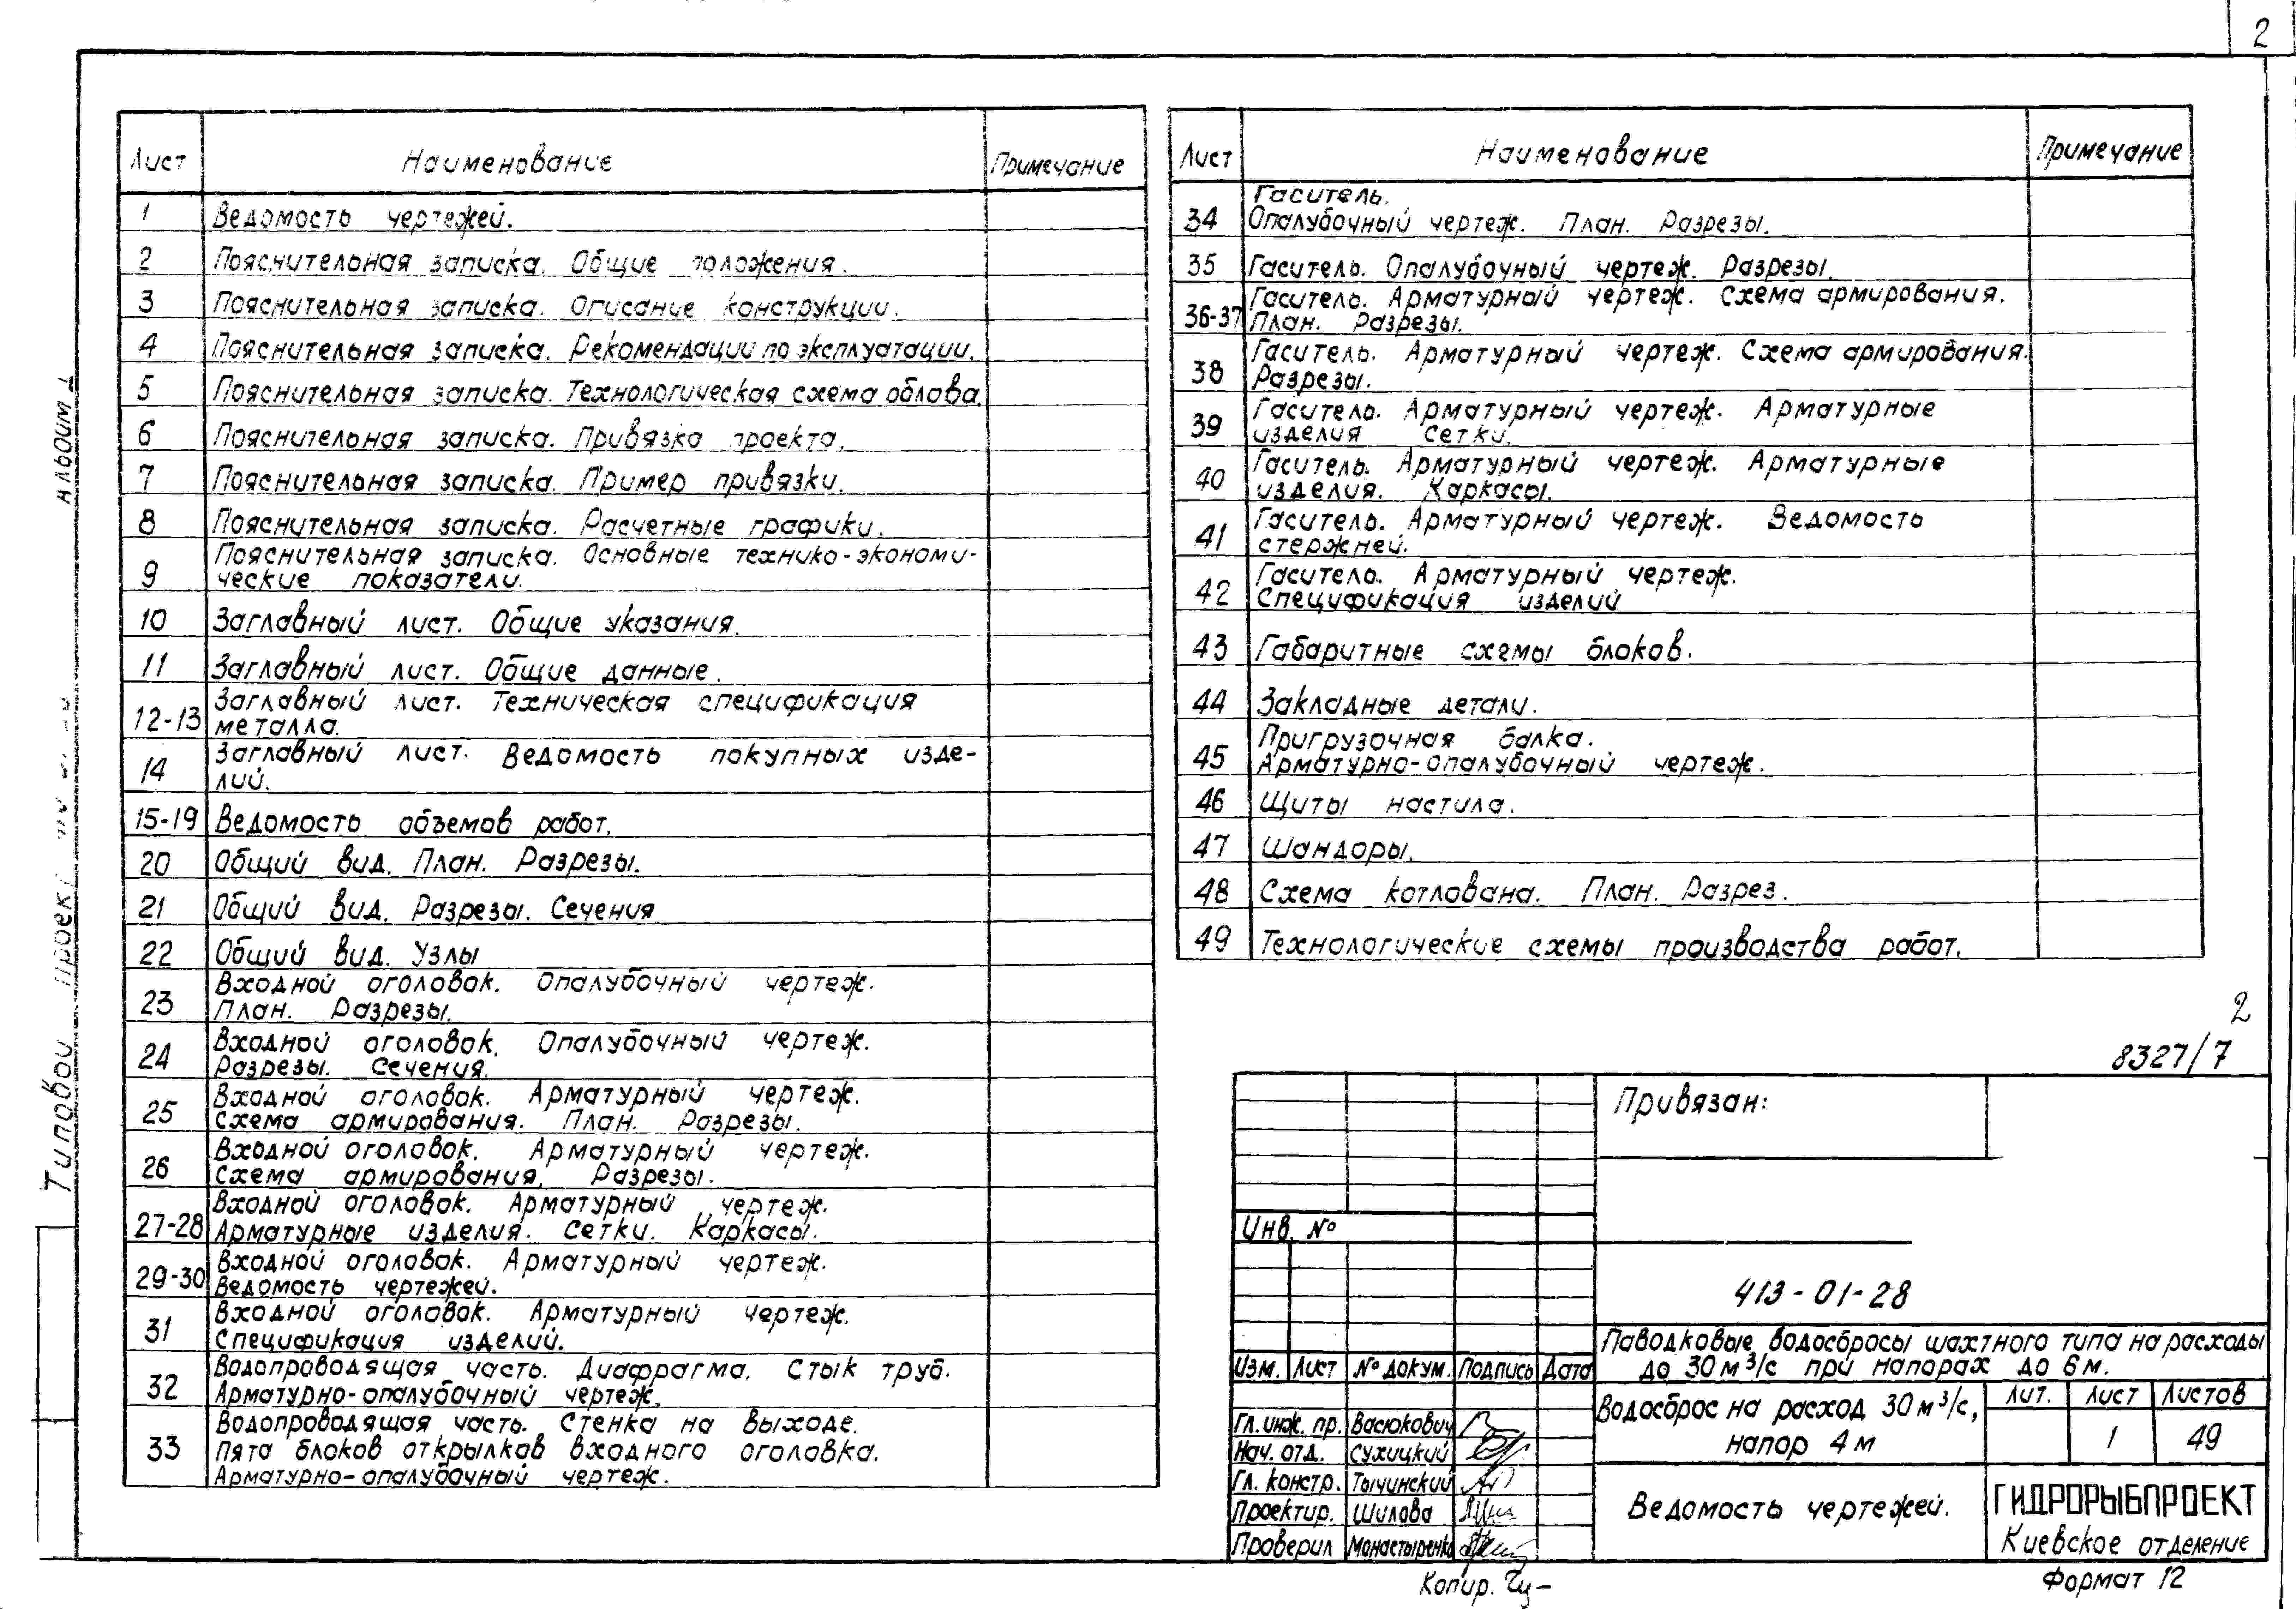 2
Лист Наименование Примечание
1 Ведомость чертежей.
2 Пояснительная записка. Общие положения.
3 Пояснительная записка. Описание конструкции.
4 Пояснительная записка. Рекомендации по эксплуатации.
5 Пояснительная записка. Технологическая схема облова.
6 Пояснительная записка. Привязка проекта.
7 Пояснительная записка. Пример привязки.
8 Пояснительная записка. Расчетные графики.
9 Пояснительная записка. Основные технико-экономи-
ческие показатели.
10 Заглавный лист. Общие указания.
11 Заглавный лист. Общие данные.
12-13 Заглавный лист. Техническая спецификация
металла.
14 Заглавный лист. Ведомость покупных изде-
лий.
15-19 Ведомость объемов работ.
20 Общий вид. План. Разрезы.
21 Общий вид. Разрезы. Сечения
22 Общий вид. Узлы
23 Входной оголовок. Опалубочный чертеж.
План. Разрезы.
24 Входной оголовок. Опалубочный чертеж.
Разрезы. Сечения.
25 Входной оголовок. Арматурный чертеж.
Схема армирования. План. Разрезы.
26 Входной оголовок. Арматурный чертеж.
Схема армирования. Разрезы.
27-28 Входной оголовок. Арматурный чертеж.
Арматурные изделия. Сетки. Каркасы.
29-30 Входной оголовок. Арматурный чертеж.
Ведомость чертежей.
31 Входной оголовок. Арматурный чертеж.
Спецификация изделий.
32 Водопроводящая часть. Диафрагма. Стык труб.
Арматурно-опалубочный чертеж.
33 Водопроводящая часть. Стенка на выходе.
Пята блоков открылков входного оголовка.
Арматурно-опалубочный чертеж.
Лист Наименование Примечание
34 Гаситель.
Опалубочный чертеж. План. Разрезы.
35 Гаситель. Опалубочный чертеж. Разрезы.
36-37 Гаситель. Арматурный чертеж. Схема армирования.
План. Разрезы.
38 Гаситель. Арматурный чертеж. Схема армирования.
Разрезы.
39 Гаситель. Арматурный чертеж. Арматурные
изделия сетки.
40 Гаситель. Арматурный чертеж. Арматурные
изделия. Каркасы.
41 Гаситель. Арматурный чертеж. Ведомость
стержней.
42 Гаситель. Арматурный чертеж.
Спецификация изделий
43 Габаритные схемы блоков.
44 Закладные детали.
45 Пригрузочная балка.
Арматурно-опалубочный чертеж.
46 Щиты настила.
47 Шандоры.
48 Схема котлована. План. Разрез.
49 Технологические схемы производства работ.
2
8327/7
Привязан:
Инв. №
413-01-28
Изм. Лист № докум. Подпись Дата
Паводковые водосбросы шахтного типа на расходы
до 30 м³/с при напорах до 6 м.
Гл. инж. пр. Васюкович
Нач. отд. Сухицкий
Гл. констр. Тычинский
Проектир. Шилова
Проверил Монастыренко
Водосброс на расход 30 м³/с,
напор 4 м
Лит. Лист Листов
1 49
Ведомость чертежей.
ГИДРОРЫБПРОЕКТ
Киевское отделение
Копир.
Формат 12
Типовой проект
Альбом